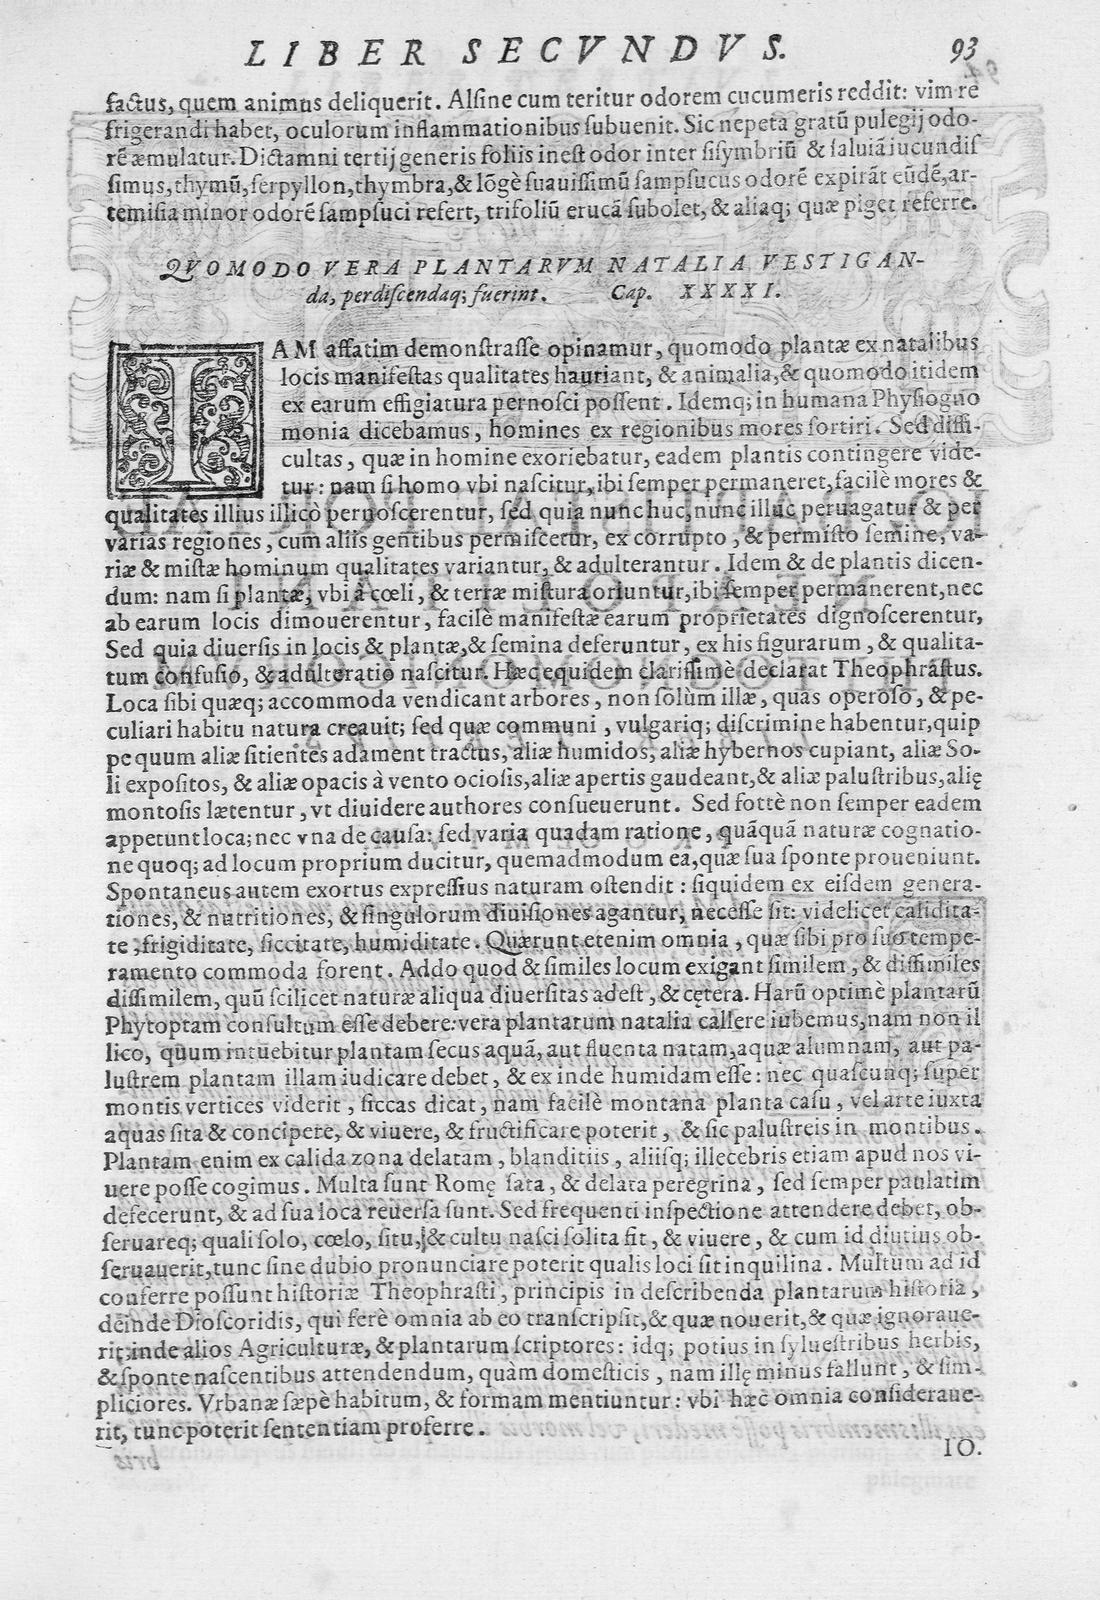 LIBER SECVNDVS. 93
factus, quem animus deliquerit. Alsine cum teritur odorem cucumeris reddit: vim re
frigerandi habet, oculorum inflammationibus subuenit. Sic nepeta gratũ pulegij odo-
rẽ æmulatur. Dictamni tertij generis foliis inest odor inter sisymbriũ & saluiã iucundis
simus, thymũ, serpyllon, thymbra, & lõgè suauissimũ sampsucus odorẽ expirãt eũdẽ, ar-
temisia minor odorẽ sampsuci refert, trifoliũ erucã subolet, & aliaq; quæ piget referre.
QVOMODO VERA PLANTARVM NATALIA VESTIGAN-
da, perdiscendaq; fuerint. Cap. XXXXI.
IAM affatim demonstrasse opinamur, quomodo plantæ ex natalibus
locis manifestas qualitates hauriant, & animalia, & quomodo itidem
ex earum effigiatura pernosci possent. Idemq; in humana Physiogno
monia dicebamus, homines ex regionibus mores sortiri. Sed diffi-
cultas, quæ in homine exoriebatur, eadem plantis contingere vide-
tur: nam si homo vbi nascitur, ibi semper permaneret, facilè mores &
qualitates illius illicò pernoscerentur, sed quia nunc huc, nunc illuc peruagatur & per
varias regiones, cum aliis gentibus permiscetur, ex corrupto, & permisto semine, va-
riæ & mistæ hominum qualitates variantur, & adulterantur. Idem & de plantis dicen-
dum: nam si plantæ, vbi à cœli, & terræ mistura oriuntur, ibi semper permanerent, nec
ab earum locis dimouerentur, facilè manifestæ earum proprietates dignoscerentur,
Sed quia diuersis in locis & plantæ, & semina deferuntur, ex his figurarum, & qualita-
tum confusio, & adulteratio nascitur. Hæc equidem clarissimè declarat Theophrastus.
Loca sibi quæq; accommoda vendicant arbores, non solùm illæ, quas operoso, & pe-
culiari habitu natura creauit; sed quæ communi, vulgariq; discrimine habentur, quip
pe quum aliæ sitientes adament tractus, aliæ humidos, aliæ hybernos cupiant, aliæ So-
li expositos, & aliæ opacis à vento ociosis, aliæ apertis gaudeant, & aliæ palustribus, alię
montosis lætentur, vt diuidere authores consueuerunt. Sed fottè non semper eadem
appetunt loca; nec vna de causa: sed varia quadam ratione, quãquã naturæ cognatio-
ne quoq; ad locum proprium ducitur, quemadmodum ea, quæ sua sponte proueniunt.
Spontaneus autem exortus expressius naturam ostendit: siquidem ex eisdem genera-
tiones, & nutritiones, & singulorum diuisiones agantur, necesse sit: videlicet calidita-
te, frigiditate, siccitate, humiditate. Quærunt etenim omnia, quæ sibi pro suo tempe-
ramento commoda forent. Addo quod & similes locum exigant similem, & dissimiles
dissimilem, quũ scilicet naturæ aliqua diuersitas adest, & cętera. Harũ optimè plantarũ
Phytoptam consultum esse debere: vera plantarum natalia callere iubemus, nam non il
lico, quum intuebitur plantam secus aquã, aut fluenta natam, aquæ alumnam, aut pa-
lustrem plantam illam iudicare debet, & ex inde humidam esse: nec quascunq; super
montis vertices viderit, siccas dicat, nam facilè montana planta casu, vel arte iuxta
aquas sita & concipere, & viuere, & fructificare poterit, & sic palustreis in montibus.
Plantam enim ex calida zona delatam, blanditiis, aliisq; illecebris etiam apud nos vi-
uere posse cogimus. Multa sunt Romę sata, & delata peregrina, sed semper paulatim
defecerunt, & ad sua loca reuersa sunt. Sed frequenti inspectione attendere debet, ob-
seruareq; quali solo, cœlo, situ, & cultu nasci solita sit, & viuere, & cum id diutius ob-
seruauerit, tunc sine dubio pronunciare poterit qualis loci sit inquilina. Multum ad id
conferre possunt historiæ Theophrasti, principis in describenda plantarum historia,
deinde Dioscoridis, qui ferè omnia ab eo transcripsit, & quæ nouerit, & quæ ignoraue-
rit; inde alios Agriculturæ, & plantarum scriptores: idq; potius in syluestribus herbis,
& sponte nascentibus attendendum, quàm domesticis, nam illę minus fallunt, & sim-
pliciores. Vrbanæ sæpè habitum, & formam mentiuntur: vbi hæc omnia considerave-
rit, tunc poterit sententiam proferre.
IO.